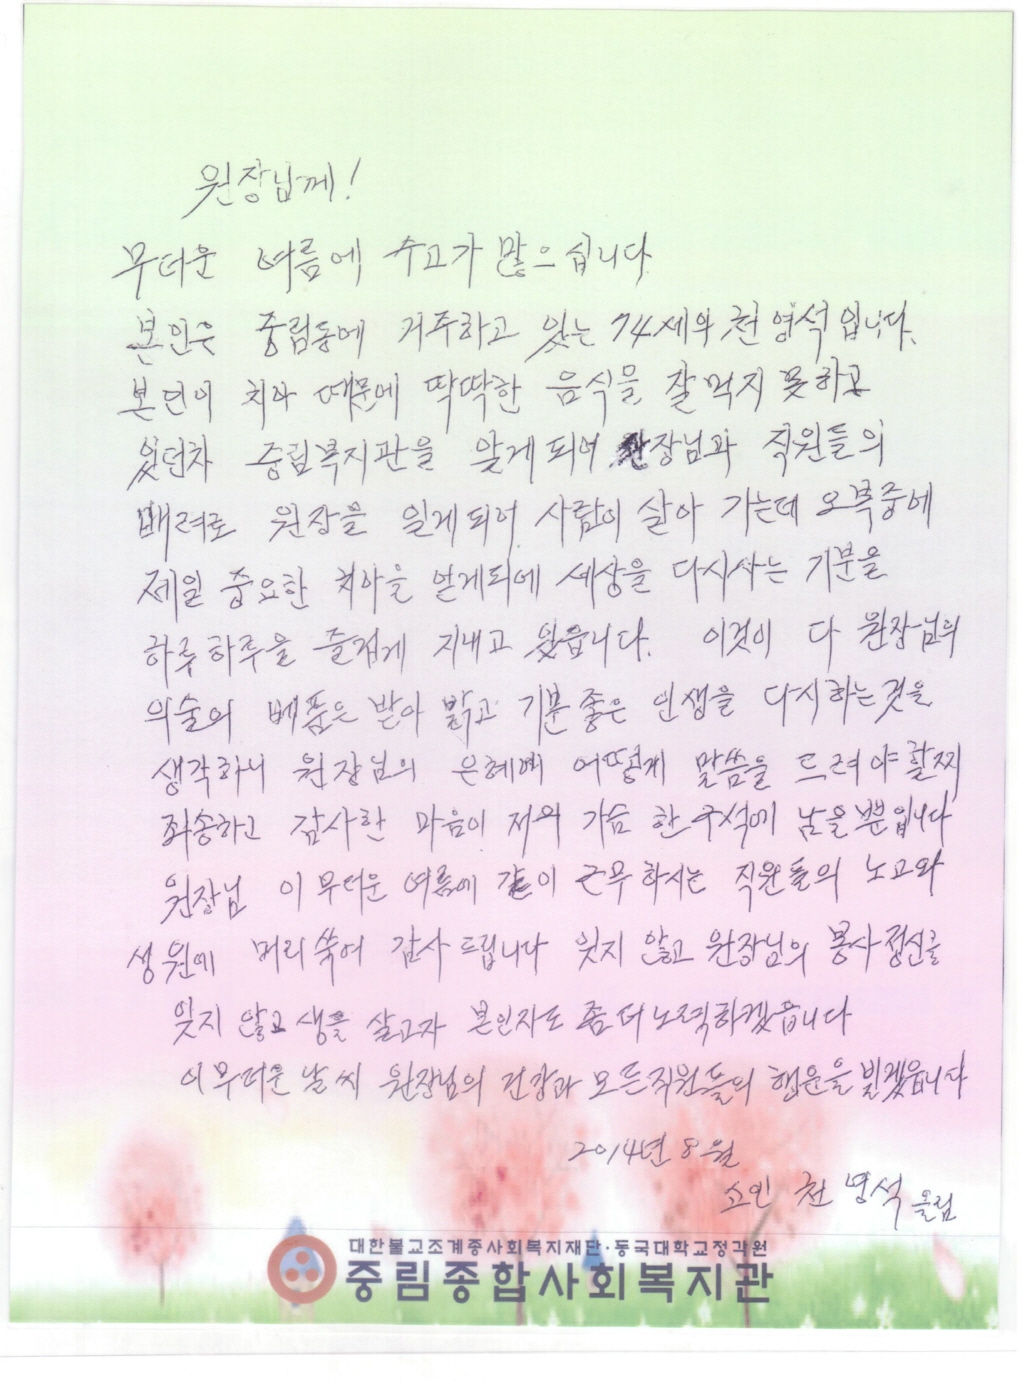 원장님께!
무더운 여름에 수고가 많으십니다.
본인은 중림동에 거주하고 있는 74세의 천영석입니다.
본인이 치아 때문에 딱딱한 음식을 잘 먹지 못하고
있던차 중림복지관을 알게되어 원장님과 직원들의
배려로 원장을 알게되어 사람이 살아 가는데 오복중에
제일 중요한 치아을 얻게되에 세상을 다시사는 기분을
하루하루을 즐겁게 지내고 있읍니다. 이것이 다 원장님의
의술의 베품은 받아 밝고 기분좋은 인생을 다시하는것을
생각하니 원장님의 은혜에 어떻게 말씀을 드려야할찌
죄송하고 감사한 마음이 저의 가슴 한구석에 남을뿐입니다
원장님 이 무더운 여름에 같이 근무하시는 직원들의 노고와
성원에 머리숙여 감사드립니다 잊지 않고 원장님의 봉사정신을
잊지 않고 생을 살고자 본인자도 좀더노력하겠읍니다
이무더운날씨 원장님의 건강과 모든직원들의 행운을빌겠읍니다
2014년 8월
소인 천영석 올림
대한불교조계종사회복지재단·동국대학교정각원
중림종합사회복지관